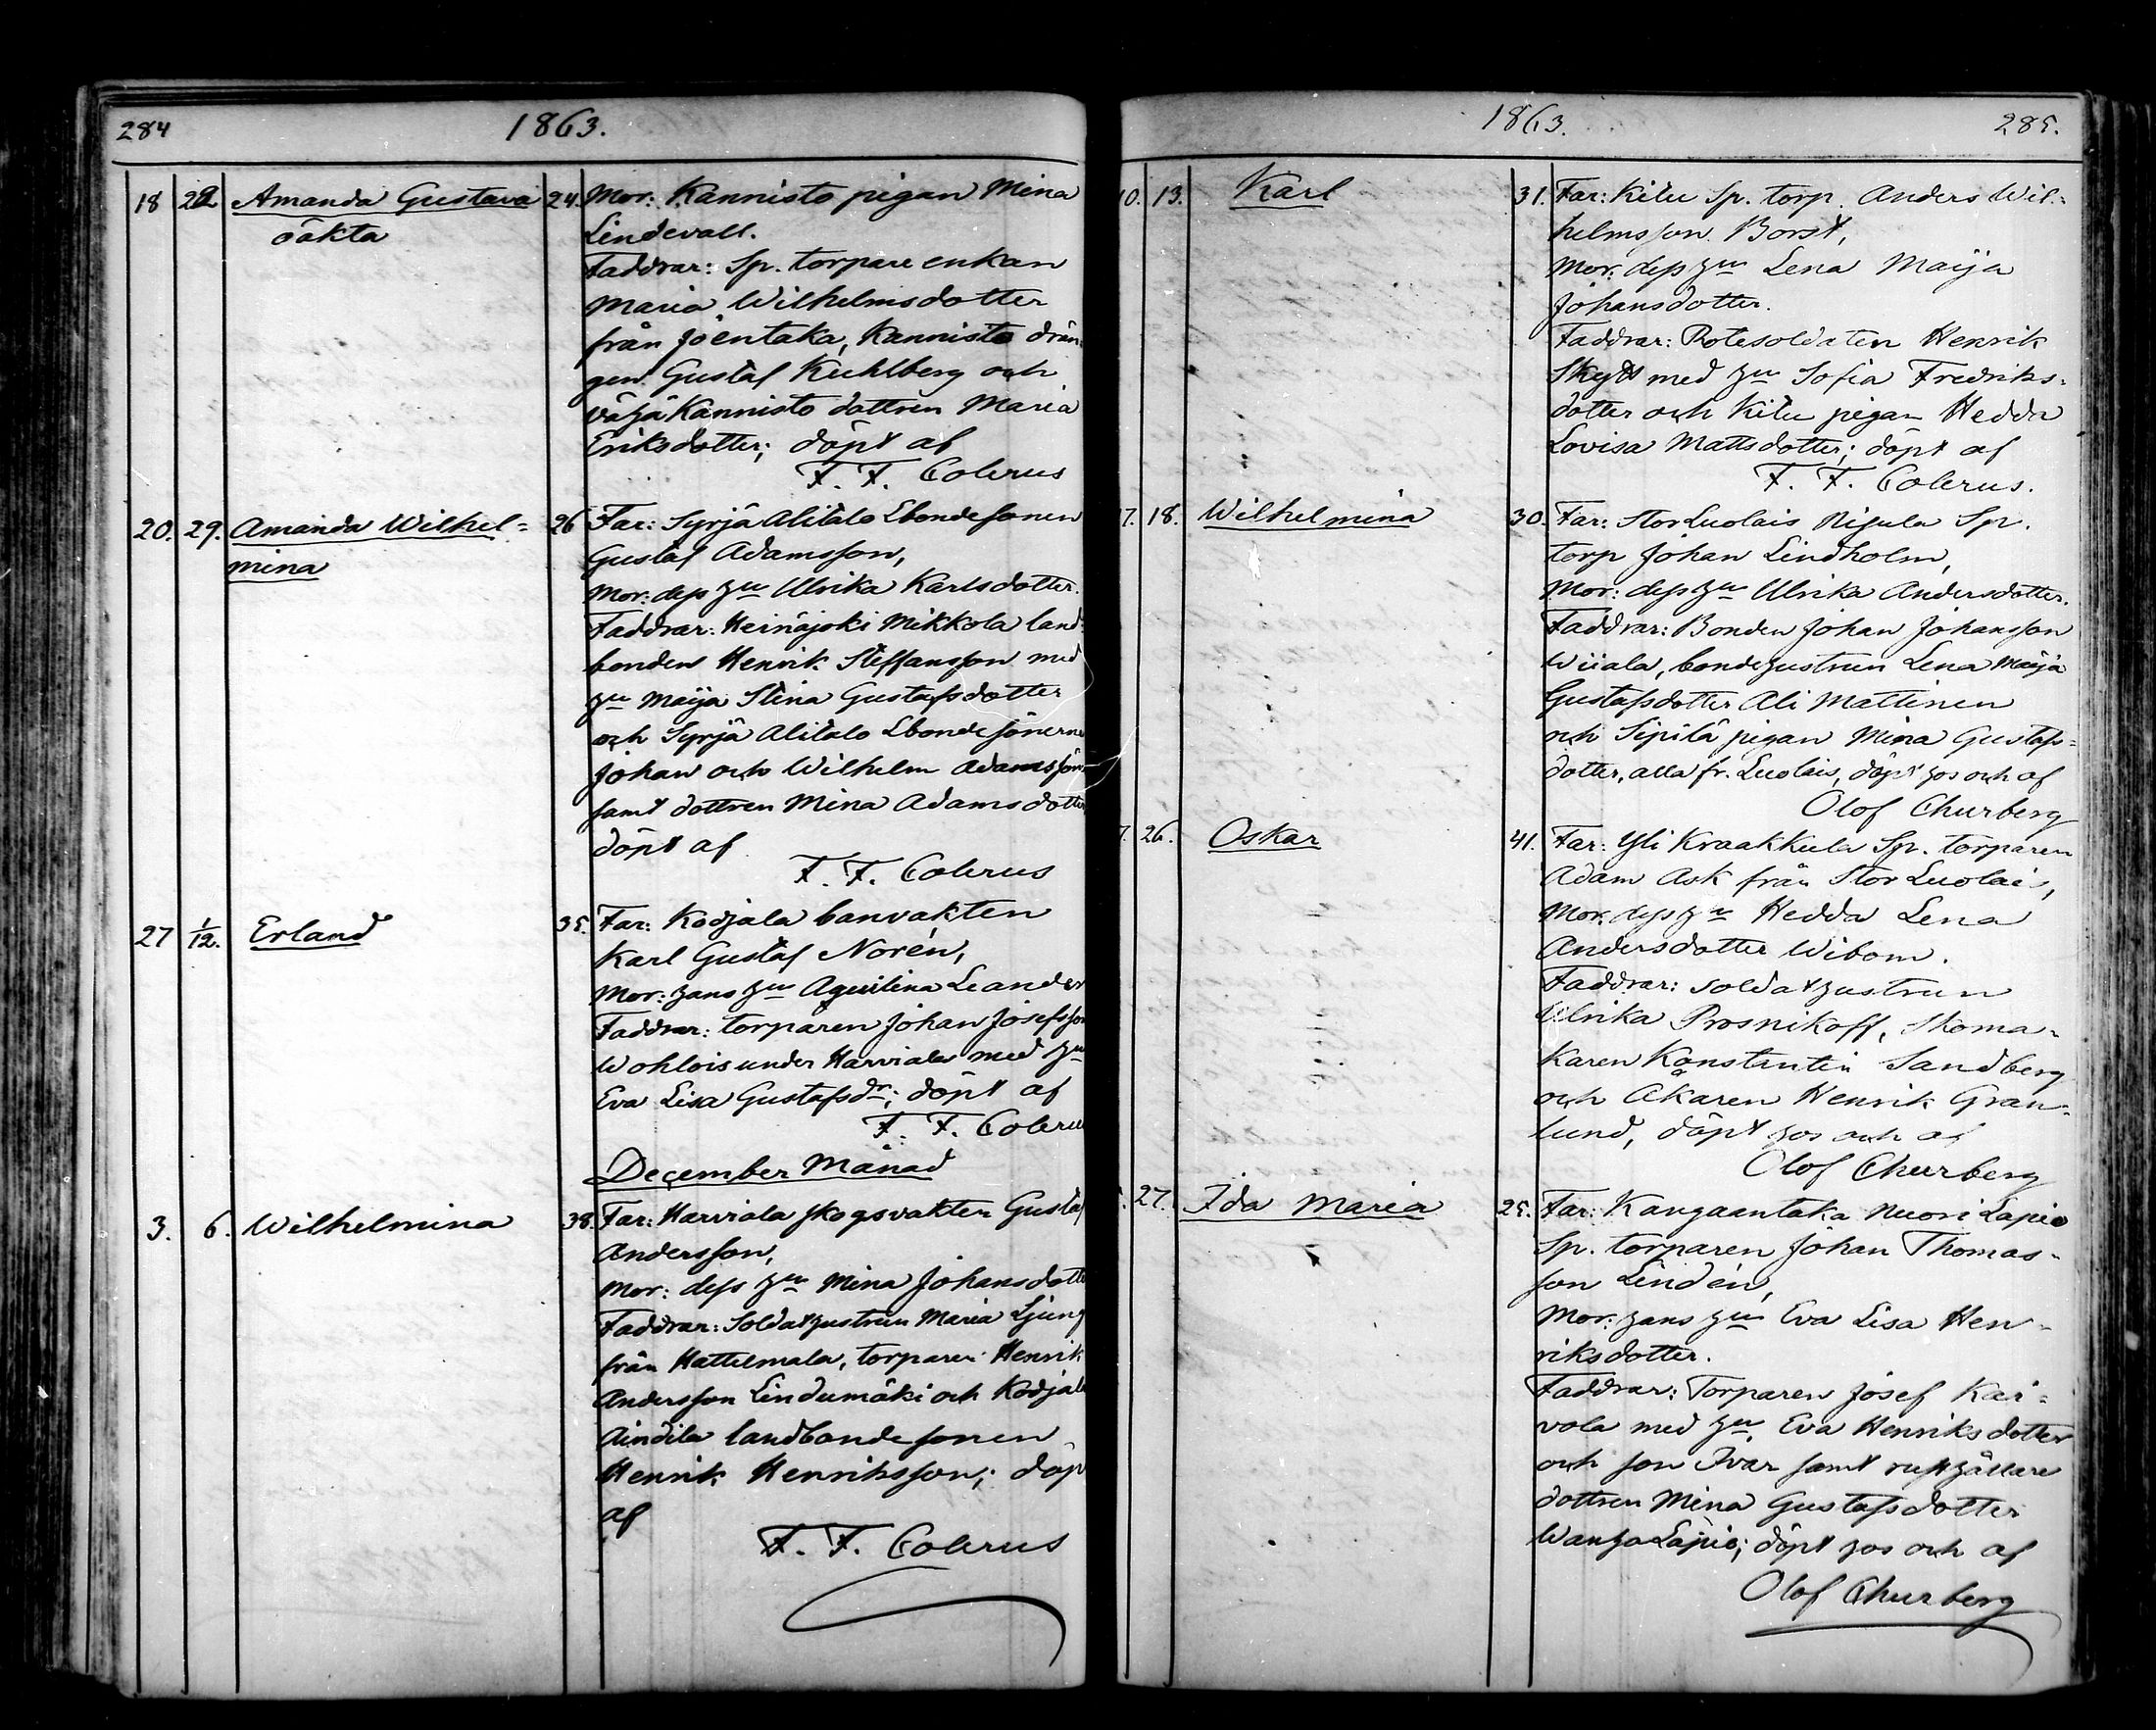 284
1863.
18 22 Amanda Gustava 24. Mor: Kannisto pigan Mina
oäkta Lindevall.
Faddrar: Sp. torpare enkan
Maria Wilhelmsdotter
från Joentaka, Kannisto drän-
gen Gustaf Kuhlberg och
Vähä Kannisto dottren Maria
Eriksdotter; döpt af
F. F. Colerus
20. 29. Amanda Wilhel- 26 Far: Syrjä Alitalo Lbondesonen
mina Gustaf Adamsson,
Mor: dess hu Ulrika Karlsdotter.
Faddrar: Heinäjoki Mikkola land-
bonden Henrik Steffansson med
hu Maija Stina Gustafsdotter
och Syrjä Alitalo Lbondesönerne
Johan och Wilhelm Adamssön-
samt dottren Mina Adamsdotter
döpt af
F. F. Colerus
27 1/12. Erland 35. Far: Kodjala banvakten
Karl Gustaf Norén,
Mor: hans hu Aqvilina Leander
Faddrar: torparen Johan Josefsson
Wohlois under Harviala med hu
Eva Lisa Gustafsdr; döpt af
F. F. Coleru
December Månad
3. 6. Wilhelmina 38. Far: Harviala skogsvakten Gustaf
Andersson,
Mor: dess hu Mina Johansdott
Faddrar: Soldathustrun Maria Ljung
från Hattelmala, torparen Henrik
Andersson Lindumäki och Kodjala
Äindilä landbondesonen
Henrik Henriksson; döp
af
F. F. Colerus
1863.
285.
10. 13. Karl 31. Far: Kilu Sp. torp. Anders Wil-
helmsson Borst,
Mor: dess hu Lena Maija
Johansdotter.
Faddrar: Rotesoldaten Henrik
Skytt med hu Sofia Fredriks-
dotter och Kilu pigan Hedda
Lovisa Mattsdotter; döpt af
F. F. Colerus.
7. 18. Wilhelmina 30. Far: Stor Luolais Nigula Sp.
torp Johan Lindholm,
Mor: dess hu Ulrika Andersdotter.
Faddrar: Bonden Johan Johansson
Wiiala, bondehustrun Lena Maija
Gustafsdotter Ali Mattinen
och Sipilä pigan Mina Gustafs-
dotter, alla fr. Luolais, döpt hos och af
Olof Churberg
7. 26. Oskar 41. Far: Yli Kraakkula Sp. torparen
Adam Ask från Stor Luolais,
Mor: dess hu Hedda Lena
Andersdotter Wibom.
Faddrar: Soldathustrun
Ulrika Prosnikoff, Skoma-
karen Konstantin Sandberg
och Åkaren Henrik Gran-
lund, döpt hos och af
Olof Churberg
27. Ida Maria 25. Far: Kangaantaka Nuori Lapio
Sp. torparen Johan Thomas-
son Lindén,
Mor: hans hu Eva Lisa Hen-
riksdotter.
Faddrar: Torparen Josef Kai-
vola med hu Eva Henriksdotter
och son Ivar samt rusthållare
dottren Mina Gustafsdotter
Wanha Lapio; döpt hos och af
Olof Churberg